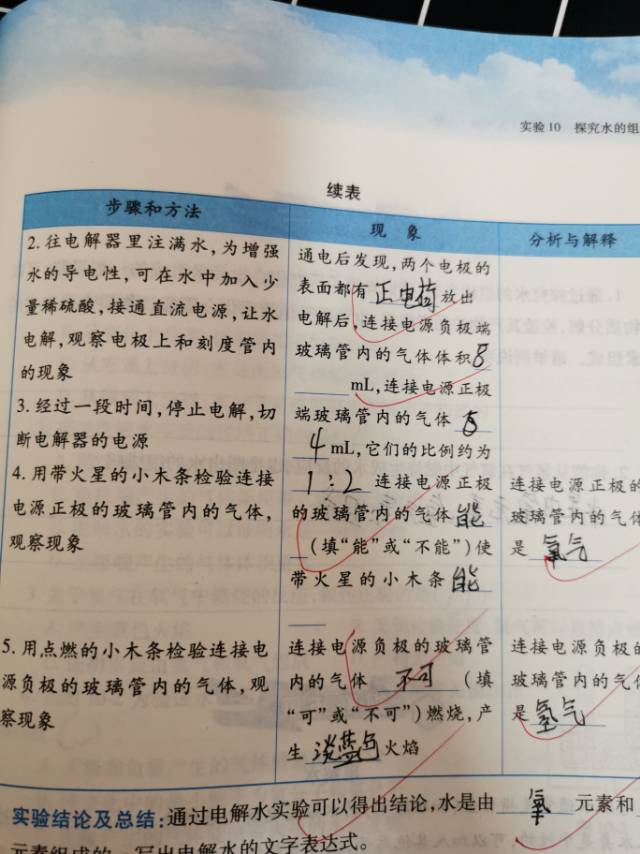 实验10 探究水的组
续表
步骤和方法
现 象
分析与解释
2. 往电解器里注满水,为增强
水的导电性,可在水中加入少
量稀硫酸,接通直流电源,让水
电解,观察电极上和刻度管内
的现象
3. 经过一段时间,停止电解,切
断电解器的电源
4. 用带火星的小木条检验连接
电源正极的玻璃管内的气体,
观察现象
通电后发现,两个电极的
表面都有正电荷放出
电解后,连接电源负极端
玻璃管内的气体体积8
mL,连接电源正极
端玻璃管内的气体
4 mL,它们的比例约为
1:2 连接电源正极
的玻璃管内的气体能
(填“能”或“不能”)使
带火星的小木条能
连接电源正极的
玻璃管内的气体
是 氧气
5. 用点燃的小木条检验连接电
源负极的玻璃管内的气体,观
察现象
连接电源负极的玻璃管
内的气体 不可 (填
“可”或“不可”)燃烧,产
生淡蓝色火焰
连接电源负极的
玻璃管内的气体
是氢气
实验结论及总结:通过电解水实验可以得出结论,水是由 氧 元素和
元素组成的。写出电解水的文字表达式。